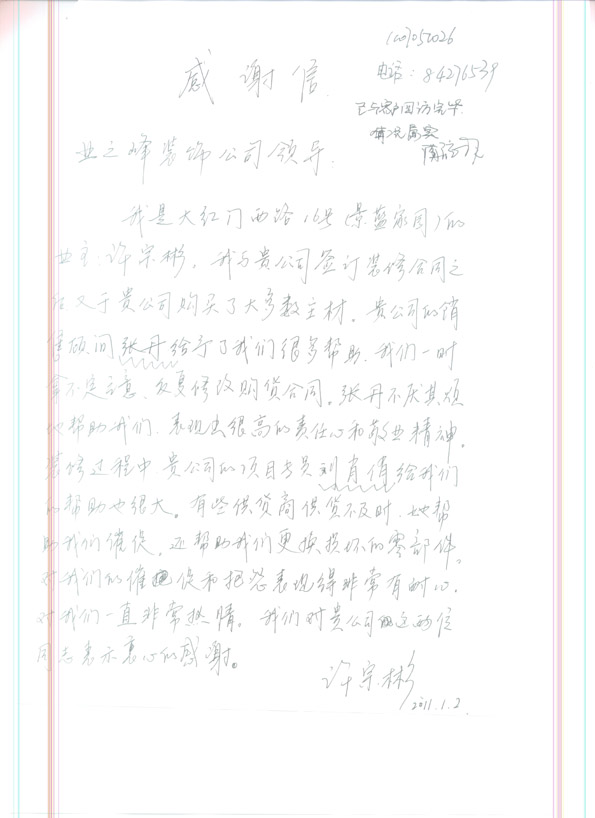 (00)050026
感谢信
电话:84276539
已与客户回访完毕.
情况属实
业之峰装饰公司领导:
我是大红门西路16号(景蓝家园)的
业主:许宗彬。我与贵公司签订装修合同之
后又于贵公司购买了大多数主材。贵公司的销
售顾问张丹给予了我们很多帮助.我们一时
拿不定主意、反复修改购货合同。张丹不厌其烦
地帮助我们.表现出很高的责任心和敬业精神。
装修过程中.贵公司的项目专员刘肖倩给我们
的帮助也很大。有些供货商供货不及时.她帮
助我们催促,还帮助我们更换损坏的零部件。
对我们的催促和抱怨表现得非常有耐心.
对我们一直非常热情。我们对贵公司的这两位
同志表示衷心的感谢。
许宗彬
2011.1.2.